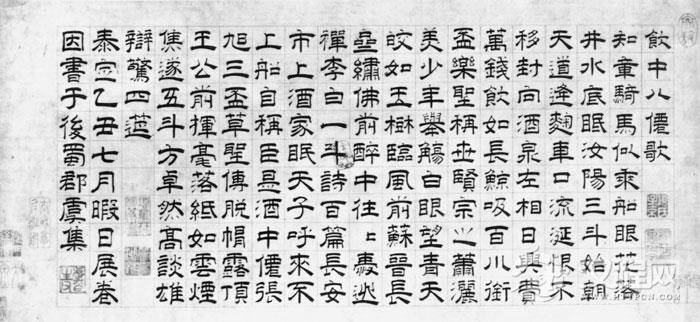 飲中八僊歌
知章騎馬似乘船眼花落
井水底眠汝陽三斗始朝
天道逢麴車口流涎恨不
移封向酒泉左相日興費
萬錢飲如長鯨吸百川銜
盃樂聖稱世賢宗之蕭灑
美少年舉觴白眼望青天
皎如玉樹臨風前蘇晉長
繡佛前醉中往〻愛逃
禪李白一斗詩百篇長安
市上酒家眠天子呼來不
上船自稱臣是酒中僊張
旭三盃草聖傳脫帽露頂
王公前揮毫落紙如雲煙
焦遂五斗方卓然高談雄
辯驚四筵
泰定乙丑七月暇日展卷
因書于後蜀郡虞集